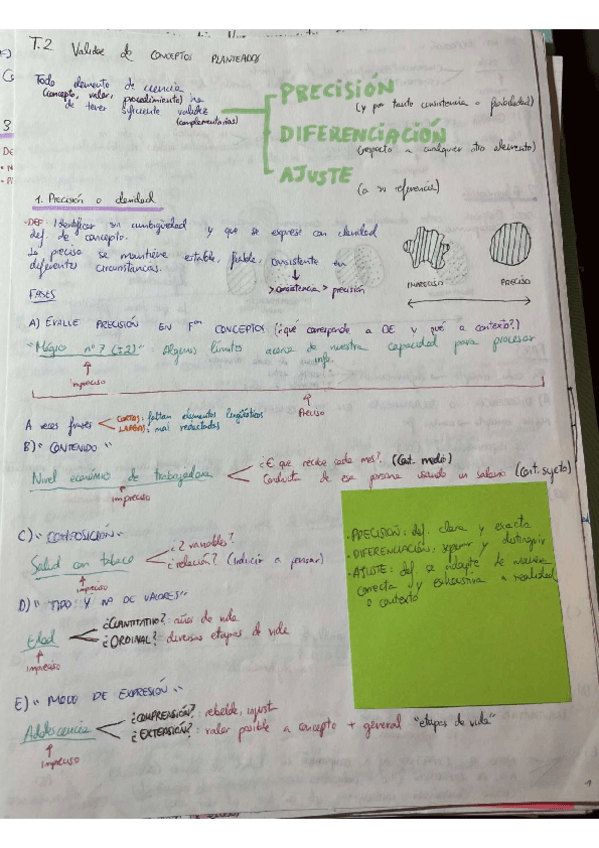 T.2 Validez de CONCEPTOS PLANTEADOS
Todo elemento de ciencia
(concepto, valor, procedimiento) ha
de tener suficiente validez
(complementarias)
PRECISIÓN
(y por tanto consistencia o fiabilidad)
DIFERENCIACIÓN
(respecto a cualquier otro elemento)
AJUSTE
(a su referencia)
1. Precisión o claridad
·DEF: Identificar sin ambigüedad y que se exprese con claridad
def. de concepto.
Lo preciso se mantiene estable, fiable, consistente en
diferentes circunstancias.
>consistencia > precisión
IMPRECISO
PRECISO
FASES
A) EVALUE PRECISIÓN EN Fᵒⁿ CONCEPTOS (¿qué corresponde a DE y qué a contexto?)
"Mágico nº 7 (±2)" Algunos límites acerca de nuestra capacidad para procesar
info.
Impreciso
Preciso
A veces frases
CORTAS: faltan elementos lingüísticos
LARGAS: mal redactadas
B) "CONTENIDO"
Nivel económico de trabajadora
¿€ que recibe cada mes? (Cat. medio)
Conducta de esa persona usando un salario (cat. sujeto)
Impreciso
C) "COMPOSICIÓN"
Salud con tabaco
¿2 variables?
¿relación? (inducir a pensar)
Impreciso
D) "TIPO Y NO DE VALORES"
Edad
¿CUANTITATIVO?: años de vida
¿ORDINAL?: diversas etapas de vida
Impreciso
E) "MODO DE EXPRESIÓN"
Adolescencia
¿COMPRENSIÓN?: rebelde, injust
¿EXTENSIÓN?: valor posible a concepto + general "etapas de vida"
Impreciso
·PRECISIÓN: def. clara y exacta
·DIFERENCIACIÓN: separar y distinguir
·AJUSTE: def se adapte de manera
correcta y exhaustiva a realidad
o contexto